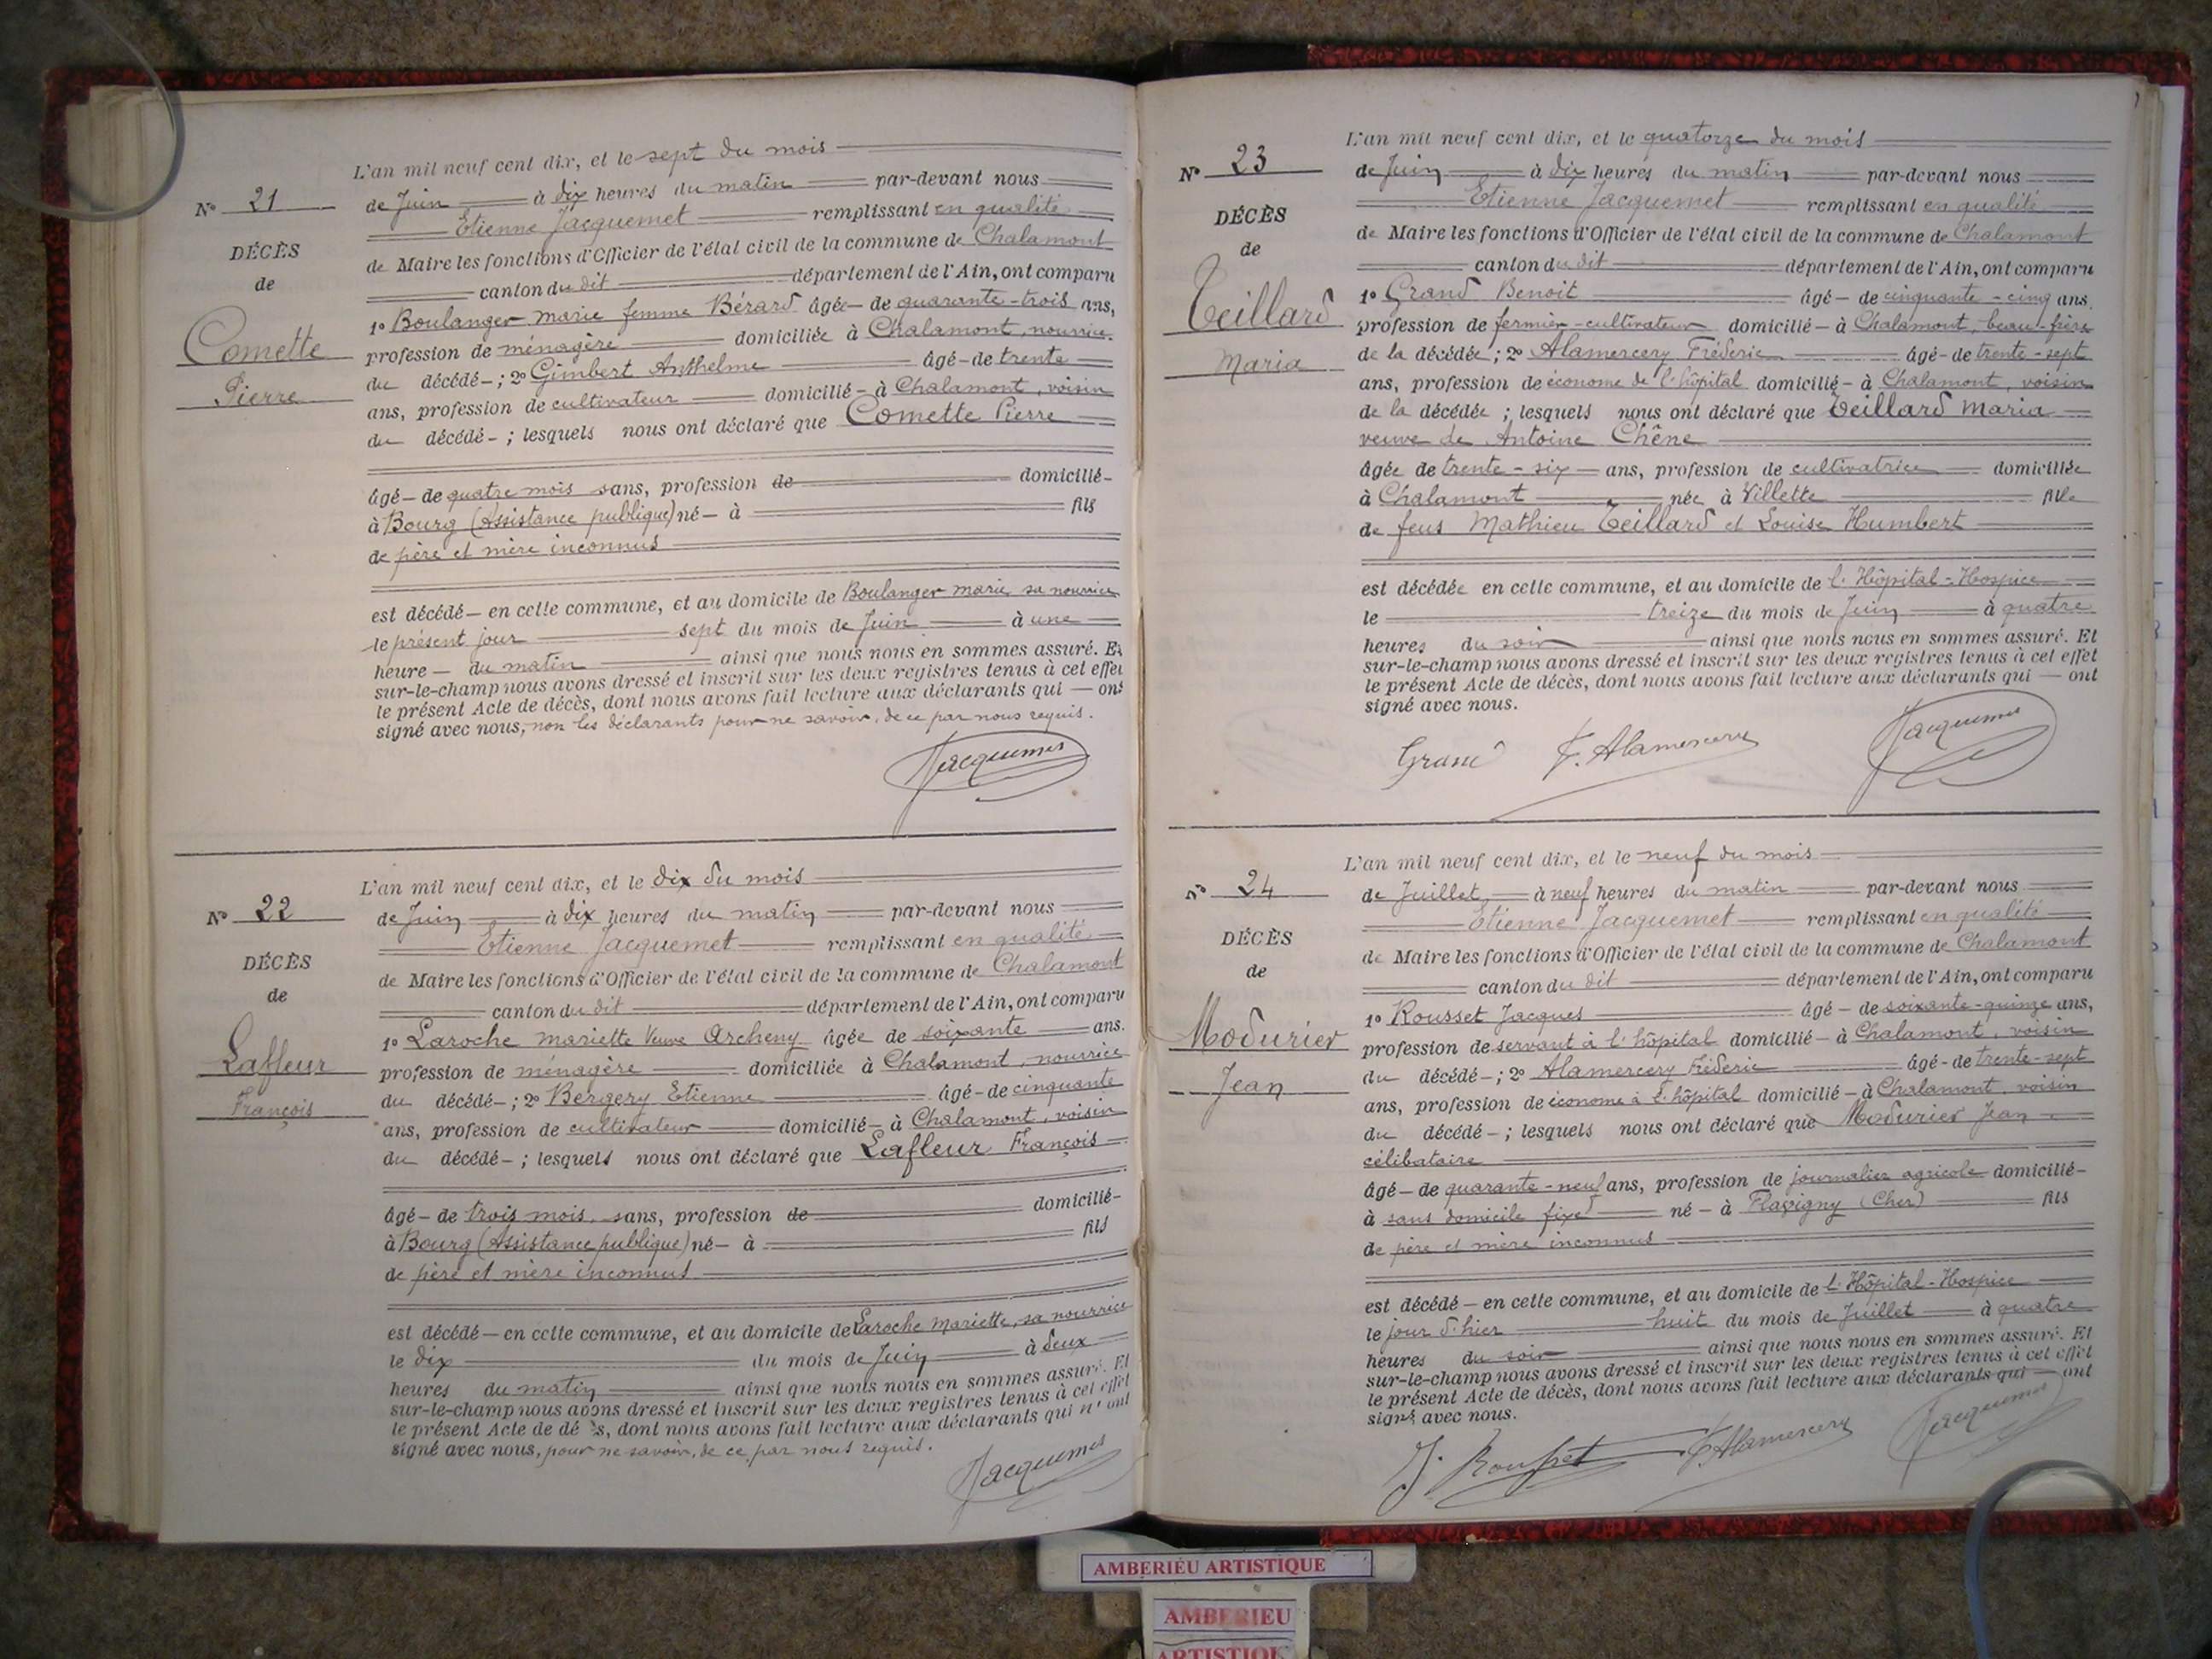 L'an mil neuf cent dix, et le sept du mois
N° 21
de Juin à dix heures du matin par-devant nous
Etienne Jacquemet remplissant en qualité
DÉCÈS
de Maire les fonctions d'Officier de l'état civil de la commune de Chalamont
de
canton du dit département de l'Ain, ont comparu
1° Boulanger marie femme Bérard âgée de quarante-trois ans,
Comette
profession de ménagère domiciliée à Chalamont, nourrice
du décédé ; 2° Gimbert Anthelme âgé de trente
Pierre
ans, profession de cultivateur domicilié à Chalamont, voisin
du décédé ; lesquels nous ont déclaré que Comette Pierre
âgé de quatre mois sans, profession de domicilié
à Bourg (Assistance publique) né à fils
de père et mère inconnus
est décédé en cette commune, et au domicile de Boulanger marie, sa nourrice
le présent jour sept du mois de Juin à une
heure du matin ainsi que nous nous en sommes assuré. Et
sur-le-champ nous avons dressé et inscrit sur les deux registres tenus à cet effet
le présent Acte de décès, dont nous avons fait lecture aux déclarants qui ont
signé avec nous, non les déclarants pour ne savoir, de ce par nous requis.
Jacquemet
L'an mil neuf cent dix, et le dix du mois
N° 22
de Juin à dix heures du matin par-devant nous
Etienne Jacquemet remplissant en qualité
DÉCÈS
de Maire les fonctions d'Officier de l'état civil de la commune de Chalamont
de
canton du dit département de l'Ain, ont comparu
1° Laroche mariette Veuve Archeny âgée de soixante ans.
Lafleur
profession de ménagère domiciliée à Chalamont, nourrice
du décédé ; 2° Bergery Etienne âgé de cinquante
François
ans, profession de cultivateur domicilié à Chalamont, voisin
du décédé ; lesquels nous ont déclaré que Lafleur François
âgé de trois mois sans, profession de domicilié
à Bourg (Assistance publique) né à fils
de père et mère inconnus
est décédé en cette commune, et au domicile de Laroche mariette, sa nourrice
le dix du mois de Juin à deux
heures du matin ainsi que nous nous en sommes assuré. Et
sur-le-champ nous avons dressé et inscrit sur les deux registres tenus à cet effet
le présent Acte de décès, dont nous avons fait lecture aux déclarants qui n'ont
signé avec nous, pour ne savoir, de ce par nous requis.
Jacquemet
L'an mil neuf cent dix, et le quatorze du mois
N° 23
de Juin à dix heures du matin par-devant nous
Etienne Jacquemet remplissant en qualité
DÉCÈS
de Maire les fonctions d'Officier de l'état civil de la commune de Chalamont
de
canton du dit département de l'Ain, ont comparu
1° Grand Benoit âgé de cinquante-cinq ans
Teillard
profession de fermier-cultivateur domicilié à Chalamont, beau-frère
Maria
de la décédée ; 2° Alamercery Fréderic âgé de trente-sept
ans, profession de économe de l'hôpital domicilié à Chalamont, voisin
de la décédée ; lesquels nous ont déclaré que Teillard Maria
veuve de Antoine Chêne
âgée de trente-six ans, profession de cultivatrice domiciliée
à Chalamont née à Villette fille
de feus Mathieu Teillard et Louise Humbert
est décédée en cette commune, et au domicile de l'Hôpital-Hospice
le treize du mois de Juin à quatre
heures du soir ainsi que nous nous en sommes assuré. Et
sur-le-champ nous avons dressé et inscrit sur les deux registres tenus à cet effet
le présent Acte de décès, dont nous avons fait lecture aux déclarants qui ont
signé avec nous.
Grand F. Alamercery Jacquemet
L'an mil neuf cent dix, et le neuf du mois
N° 24
de Juillet à neuf heures du matin par-devant nous
Etienne Jacquemet remplissant en qualité
DÉCÈS
de Maire les fonctions d'Officier de l'état civil de la commune de Chalamont
de
canton du dit département de l'Ain, ont comparu
1° Rousset Jacques âgé de soixante-quinze ans,
Modurier
profession de servant à l'hôpital domicilié à Chalamont, voisin
du décédé ; 2° Alamercery Fréderic âgé de trente-sept
Jean
ans, profession de économe à l'hôpital domicilié à Chalamont, voisin
du décédé ; lesquels nous ont déclaré que Modurier Jean
célibataire
âgé de quarante-neuf ans, profession de journalier agricole domicilié
à sans domicile fixe né à Flavigny (Cher) fils
de père et mère inconnus
est décédé en cette commune, et au domicile de l'Hôpital-Hospice
le jour d'hier huit du mois de Juillet à quatre
heures du soir ainsi que nous nous en sommes assuré. Et
sur-le-champ nous avons dressé et inscrit sur les deux registres tenus à cet effet
le présent Acte de décès, dont nous avons fait lecture aux déclarants qui ont
signé avec nous.
J. Rousset F. Alamercery Jacquemet
AMBERIEU ARTISTIQUE
AMBERIEU
ARTISTIQUE